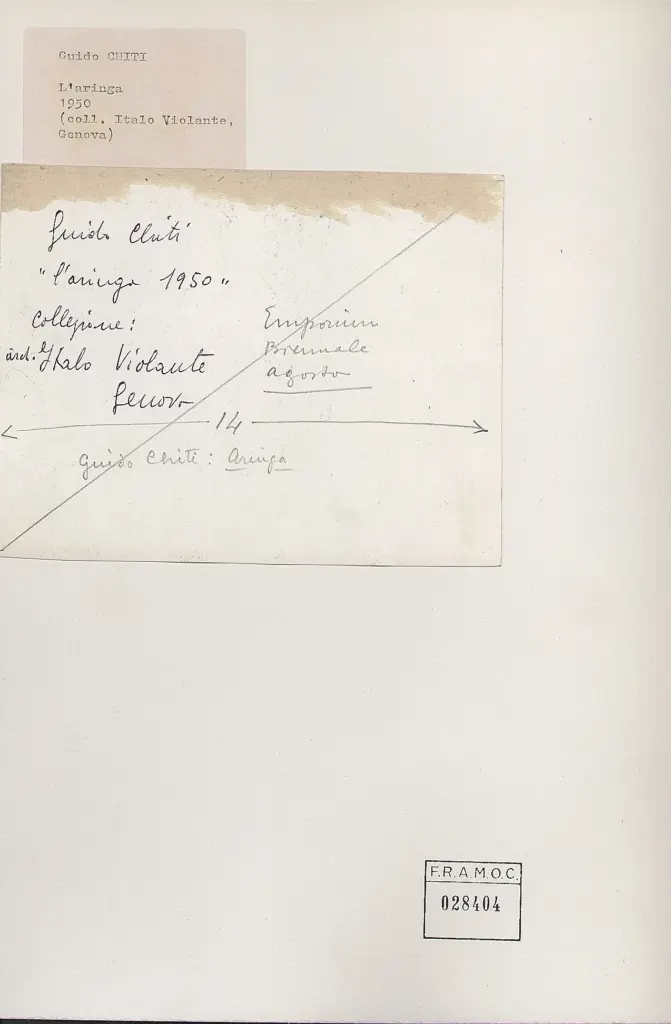 Guido CHITI
L'aringa
1950
(coll. Italo Violante,
Genova)
Guido Chiti
"l'aringa 1950"
Collezione:
arch. Italo Violante
Genova
Emporium
Biennale
agosto
14
Guido Chiti: Aringa
F.R.A.M.O.C.
028404